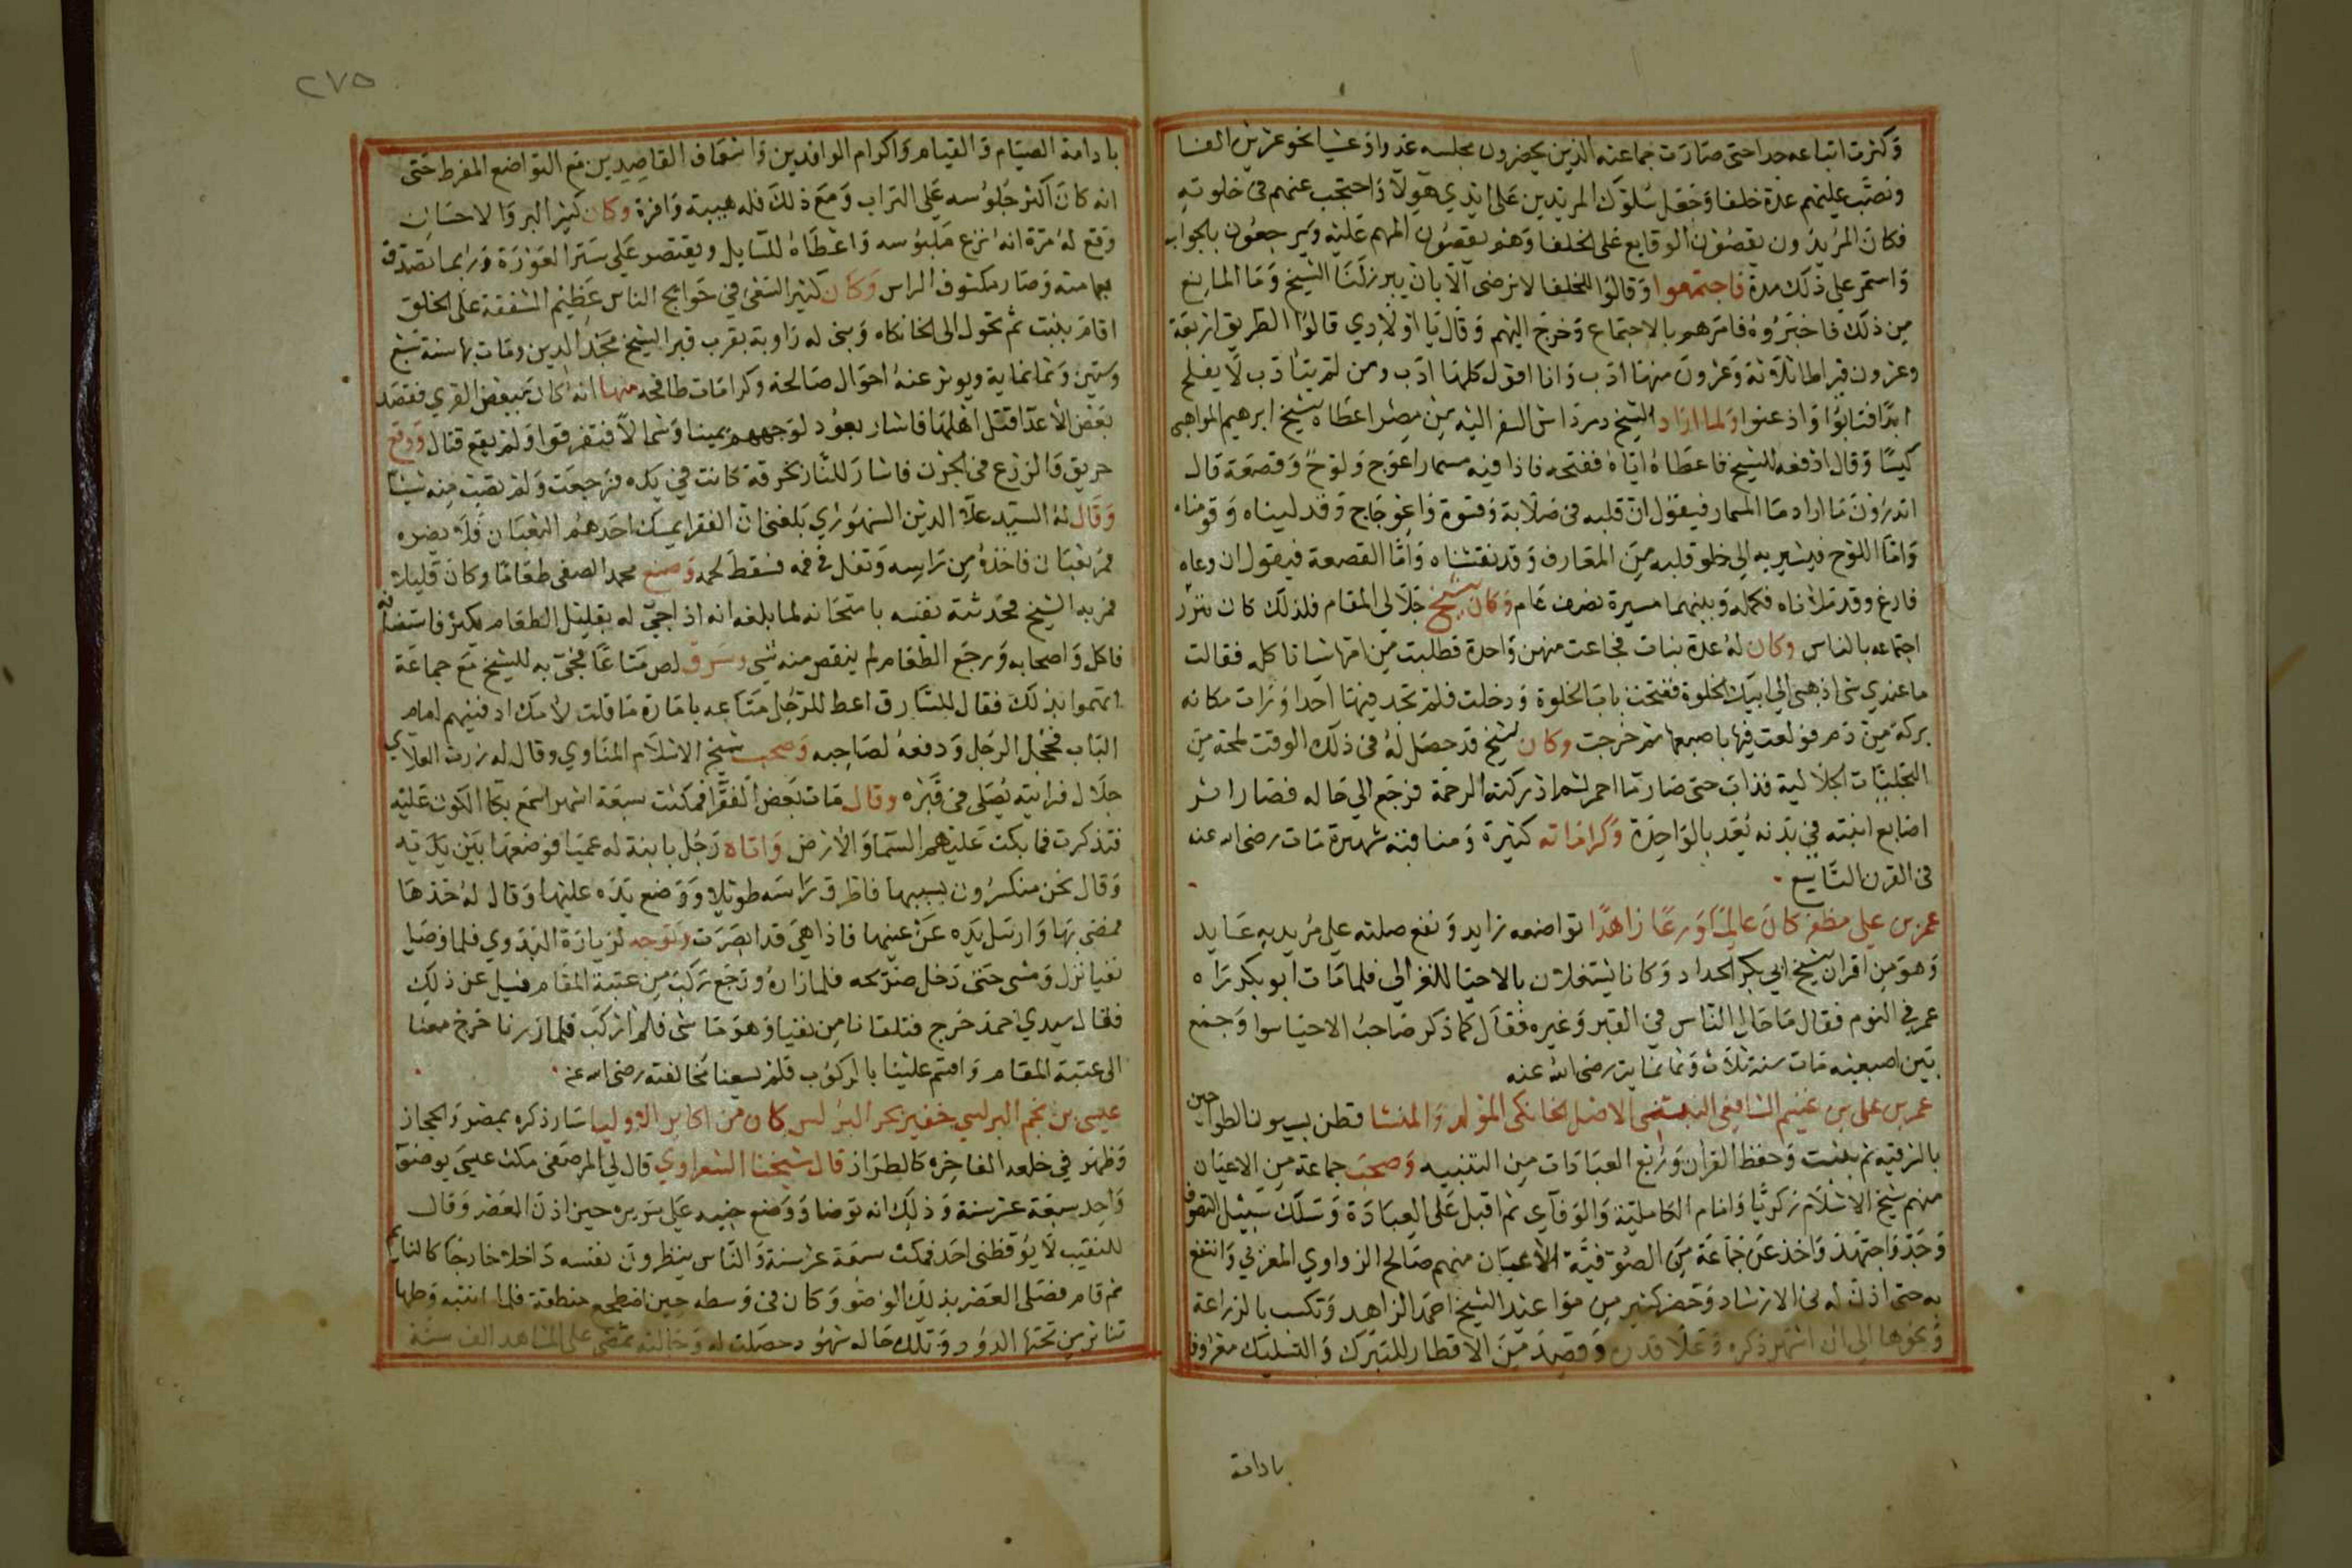 وكثرت اتباعه جدا حتى صارت جماعته الذين يحضرون مجلسه غدوا وعشيا نحو عشرين الفا
ونصب عليهم عدة خلفا وجعل سلوك المريدين على ايدي هولا واحتجب عنهم في خلوته
فكان المريدون يقصون الوقايع على الخلفا وهم يقصون المهم عليه ويرجعون بالجواب
واستمر على ذلك مدة فاجتمعوا وقالوا للخلفا لا نرضى الا بان يبرز لنا الشيخ وما المانع
من ذلك فاخبروه فامرهم بالاجتماع وخرج اليهم وقال يا اولادي قالوا الطريق اربعة
وعشرون قيراطا ثلاثة وعشرون منها ادب وانا اقول كلها ادب ومن لم يتادب لا يفلح
ابدا فتابوا واذعنوا ولما اراد الشيخ دمرداش السفر اليه من مصر اعطاه شيخ ابرهيم المواهبي
كيسا وقال ادفعه للشيخ فاعطاه اياه ففتحه فاذا فيه مسمار اعوج ولوح وقصعة قال
اتدرون ما اراد ما المسمار فيقول ان قلبه في صلابة وقسوة واعوجاج وقد ليناه وقومناه
واما اللوح فيشير به الى خلو قلبه من المعارف وقد نقشناه واما القصعة فيقول ان وعاه
فارغ وقد ملاناه فكمله وبينهما مسيرة نصف عام وكان الشيخ جلالي المقام فلذلك كان ينزر
اجتماعه بالناس وكان له عدة بنات فجاعت منهن واحدة فطلبت من امها شيا تاكله فقالت
ما عندي شي اذهبي الى ابيك الخلوة ففتحت باب الخلوة ودخلت فلم تجد فيها احدا ورات مكانه
بركة من دم فولعت فيها باصبعها ثم خرجت وكان الشيخ قد حصل له في ذلك الوقت لمحة من
التجليات الجلالية فذاب حتى صار ما احمر ثم ادركته الرحمة فرجع الى حاله فصار اثر
اصابع ابنته في بدنه يعد بالواحدة وكراماته كثيرة ومناقبه شهيرة مات رضي الله عنه
في القرن التاسع
عمر بن علي مظفر كان عالما ورعا زاهدا تواضعه زايد ونفع صلته على مريديه عايد
وهو من اقران الشيخ ابي بكر الحداد وكانا يشتغلان بالاحيا للغزالي فلما مات ابو بكر راه
عمر في النوم فقال ما حال الناس في القبر وغيره فقال كما ذكر صاحب الاحيا سوا وجمع
بين اصبعيه مات سنة ثلاث وثمانماية رضي الله عنه
عمر بن علي بن غنيم الشافعي النبتيتي الاصل الخانكي المولد والمنشا قطن بسيون الطواحين
بالشرقيه ثم بلبيت وحفظ القران وربع العبادات من التنبيه وصحب جماعة من الاعيان
منهم شيخ الاسلام زكريا وامام الكاملية والوفاي ثم اقبل على العبادة وسلك سبيل التصوف
وجد واجتهد واخذ عن جماعة من الصوفية الاعيان منهم صالح الزواوي المغربي وانتفع
به حتى اذن له في الارشاد وحضر كثير من مواعيد الشيخ احمد الزاهد وتكسب بالزراعة
ونحوها الى ان اشتهر ذكره وعلا قدره وقصد من الاقطار للتبرك والتسليك معروفا
بادامة
٢٧٥
بادامة الصيام والقيام واكرام الوافدين واسعاف القاصدين مع التواضع المفرط حتى
انه كان اكثر جلوسه على التراب ومع ذلك فله هيبة وافرة وكان كثير البر والاحسان
وقع له مرة انه نزع ملبوسه واعطاه للسايل ويقتصر على ستر العورة وربما تصدق
بعمامته وصار مكشوف الراس وكان كثير السعي في حوايج الناس عظيم الشفقة على الخلق
اقام بلبيت ثم تحول الى الخانكاه وبنى له زاوية بقرب قبر الشيخ مجد الدين ومات بها سنة سبع
وستين وثمانماية ويوثر عنه احوال صالحة وكرامات طافحه منها انه كان ببعض القرى فقصد
بعض الاعدا قتل اهلها فاشار بعود لوجههم يمينا وشمالا فتفرقوا ولم يقع قتال ووقع
حريق فالزرع في الجرن فاشار للنار بخرقة كانت في يده فرجعت ولم تصب منه شيئا
وقال له السيد علا الدين السنهوري بلغني ان الفقرا يمسك احدهم الثعبان فلا يضره
فمر ثعبان فاخذه من راسه وتفل في فمه فسقط لحمه وصنع محمد الصفي طعاما وكان قليلا
فمر به الشيخ فحدثته نفسه بامتحانه لما بلغه انه اذا جي له بقليل الطعام يكثر فاستضافه
فاكل واصحابه ورجع الطعام لم ينقص منه شي وسرق لص متاعا فجي به للشيخ مع جماعة
اتهموا بذلك فقال للسارق اعط للرجل متاعه بامارة ما قلت لامك ادفنيهم امام
الباب فخجل الرجل ودفعه لصاحبه وصحب شيخ الاسلام المناوي وقال له زرت العلاي
جلال فرايته يصلي في قبره وقال مات بعض الفقرا فمكثت سبعة اشهر اسمع بكا الكون عليه
فتذكرت فما بكت عليهم السما والارض واتاه رجل بابنة له عميا فوضعها بين يديه
وقال نحن منكسرون بسببها فاطرق راسه طويلا ووضع يده عليها وقال له خذها
فمضى بها وارسل يده عن عينها فاذا هي قد ابصرت وتوجه لزيارة البدوي فلما وصل
نفيا نزل ومشى حتى دخل ضريحه فلما زاره ورجع ركب من عتبة المقام فسيل عن ذلك
فقال سيدي احمد خرج فتلقانا من نفيا وهو ماشي فلم اركب فلما زرنا خرج معنا
الى عتبة المقام واقسم علينا بالركوب فلم يسعنا مخالفته رضي الله عنه
عيسى بن نجم البرلسي خفير بحر البرلس كان من اكابر الاوليا سار ذكره بمصر والحجاز
وظهر في خلعه الفاخره كالطراز قال شيخنا الشعراوي قال لي المرصفي مكث عيسى بوضو
واحد سبعة عشر سنة وذلك انه توضا ووضع جنبه على سريره حين اذن العصر وقال
للنقيب لا يوقظني احد فمكث سبعة عشر سنة والناس ينظرون نفسه داخلا خارجا كالنايم
ثم قام فصلى العصر بذلك الوضو وكان في وسطه حين اضطجع منطقة فلما انتبه وحلها
تناثر من تحتها الدود وتلك حاله شهود حصلت له وحالته تمضي على المشاهد الف سنة